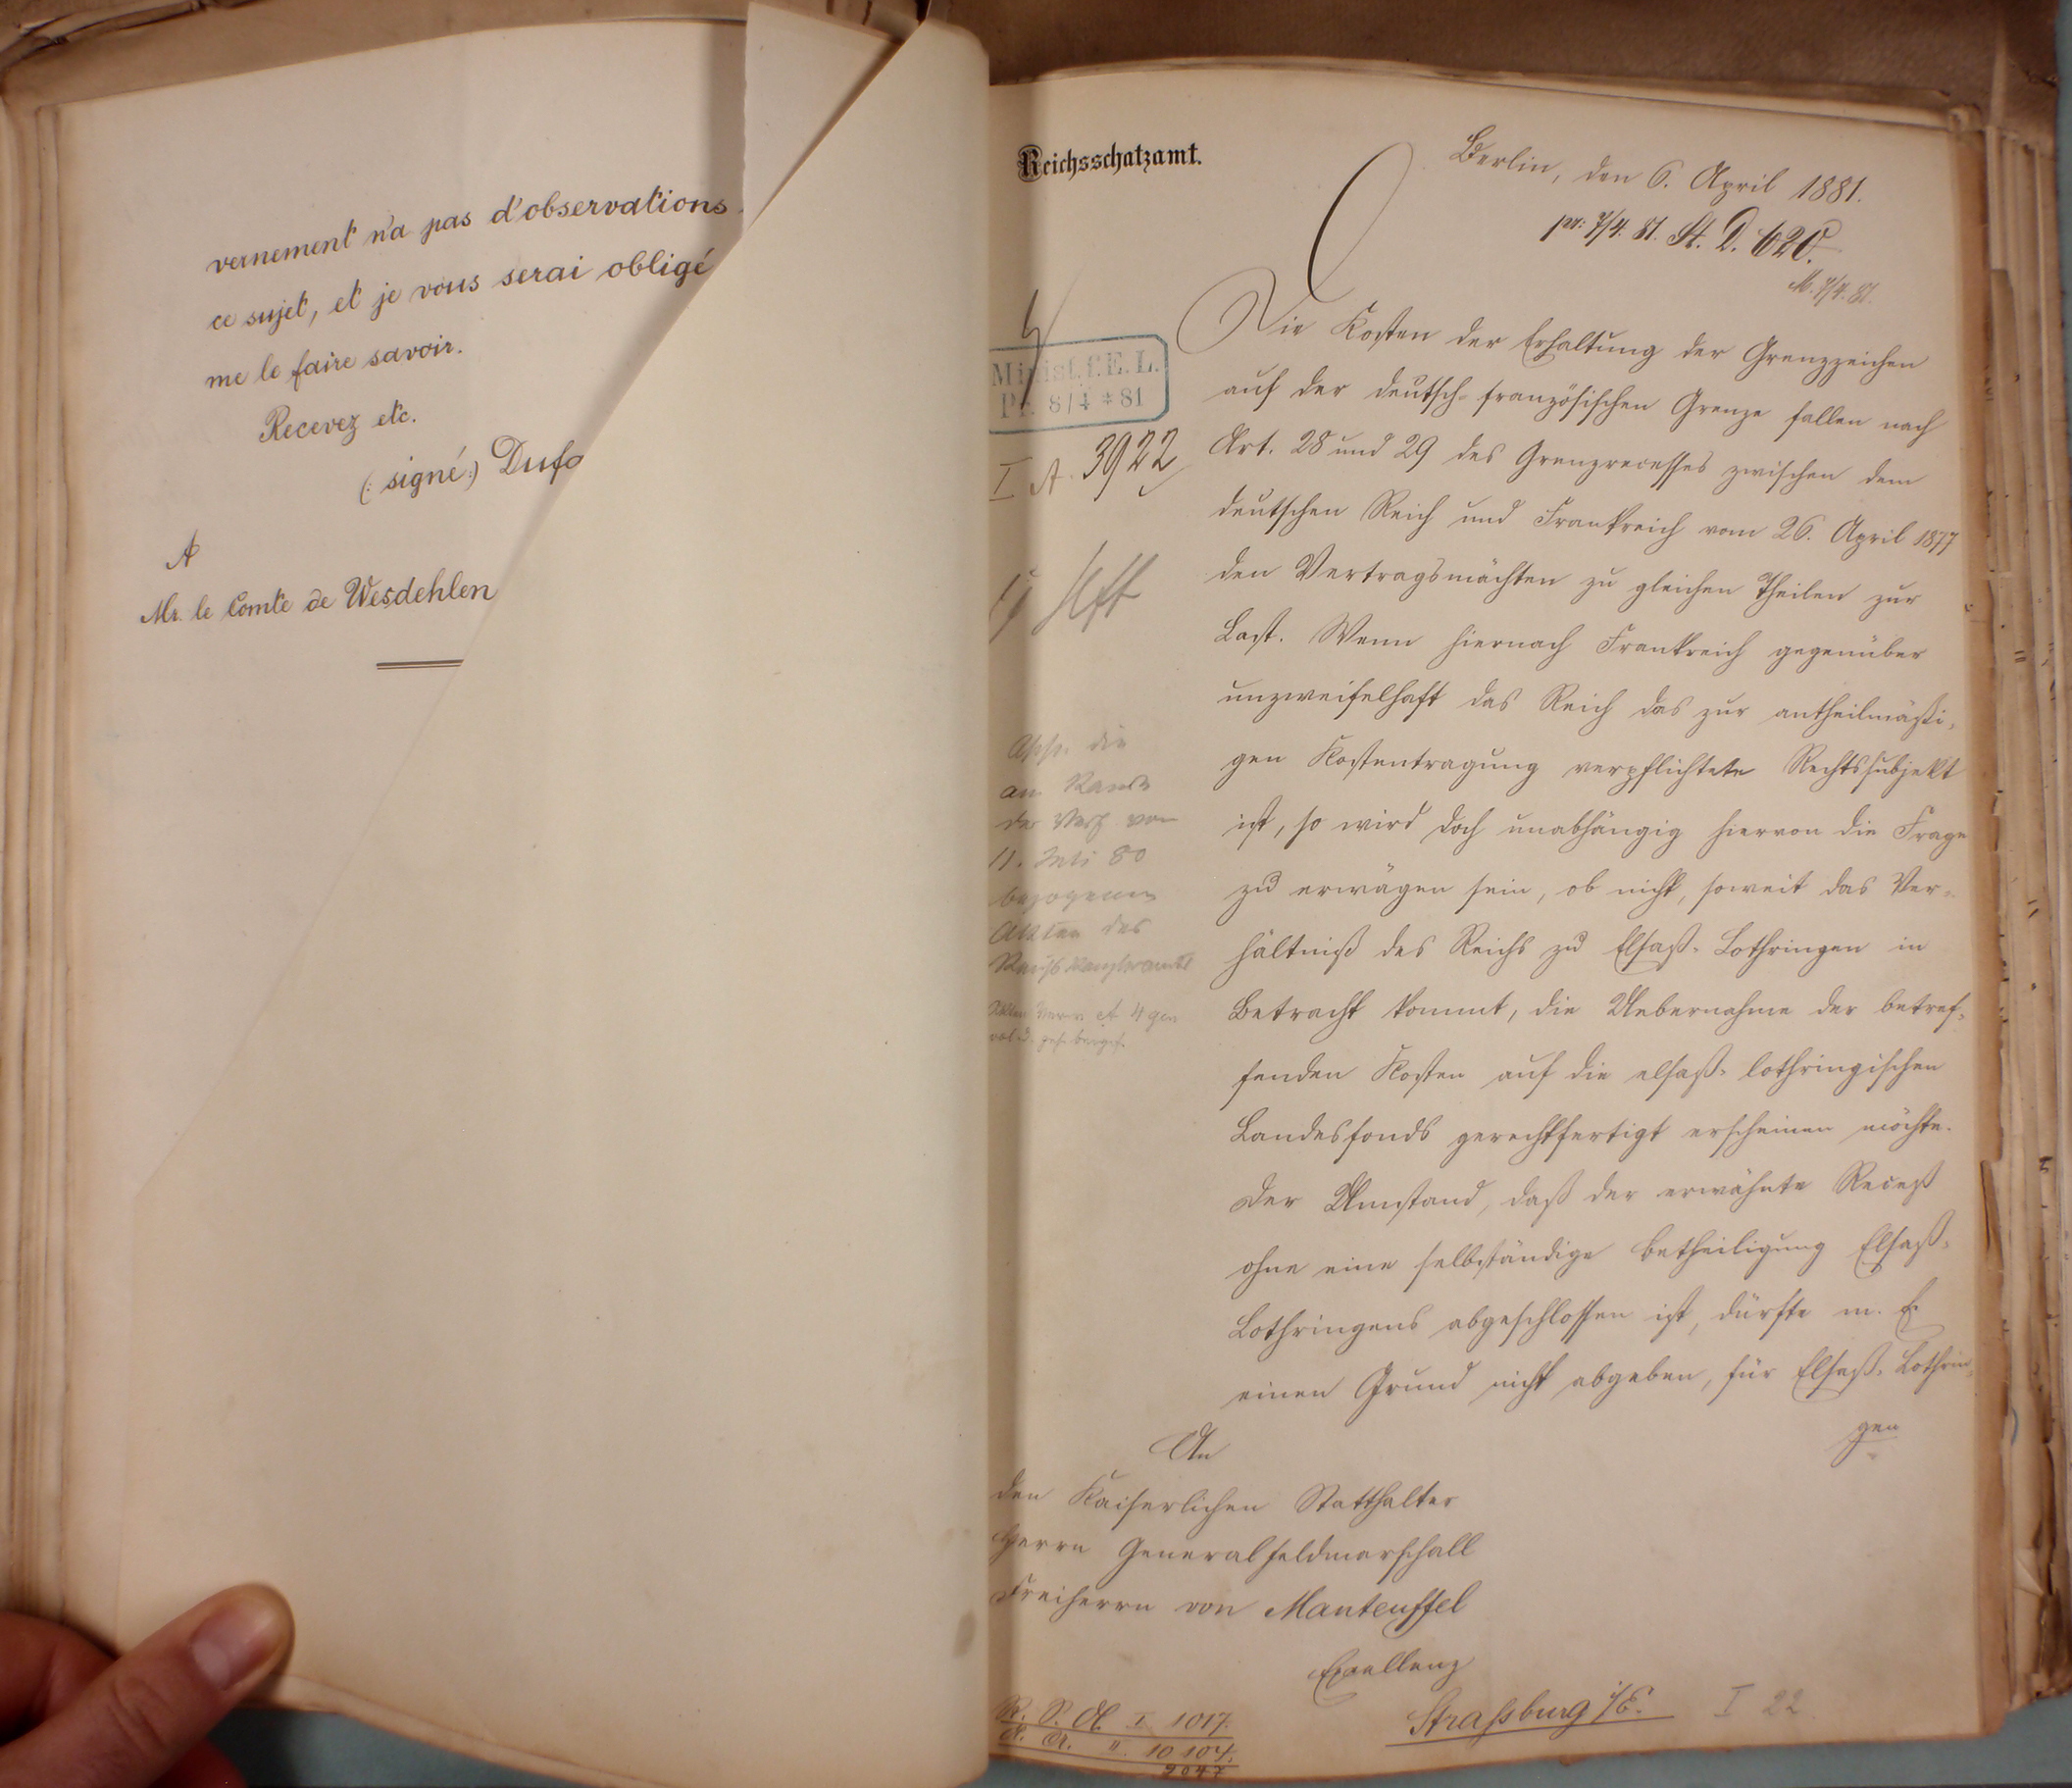 vernement n'a pas d'observations
ce sujet, et je vous serai obligé
me le faire savoir.
Recevez etc.
(: signé :) Dufa
A
Mr. le Comte de Wesdehlen
Reichsschatzamt.
Berlin, den 6. April 1881.
pr. 7/4. 81. St. D. 620.
M. 7/4. 81.
Minist. f. E. L.
Pr. 8/4 * 81
I A. 3922
Die Kosten der Erhaltung der Grenzzeichen
auf der deutsch-französischen Grenze fallen nach
Art. 28 und 29 des Grenzrecesses zwischen dem
deutschen Reich und Frankreich vom 26. April 1877
den Vertragsmächten zu gleichen Theilen zur
Last. Wenn hiernach Frankreich gegenüber
unzweifelhaft das Reich das zur antheilmäßi-
gen Kostentragung verpflichtete Rechtssubjekt
ist, so wird doch unabhängig hiervon die Frage
zu erwägen sein, ob nicht, soweit das Ver-
hältniß des Reichs zu Elsaß-Lothringen in
Betracht kommt, die Uebernahme der betref-
fenden Kosten auf die elsaß-lothringischen
Landesfonds gerechtfertigt erscheinen möchte.
Der Umstand, daß der erwähnte Receß
ohne eine selbständige Betheiligung Elsaß-
Lothringens abgeschlossen ist, dürfte m. E.
einen Grund nicht abgeben, für Elsaß-Lothrin-
gen
die
am Rande
der Verf. vom
11. Juli 80
bezogenen
Akten des
Reichskanzleramts
An
den Kaiserlichen Statthalter
Herrn Generalfeldmarschall
Freiherrn von Manteuffel
Excellenz
Straßburg i/E.
I 22
R. S. A. I 1017.
" 10 104.
2047